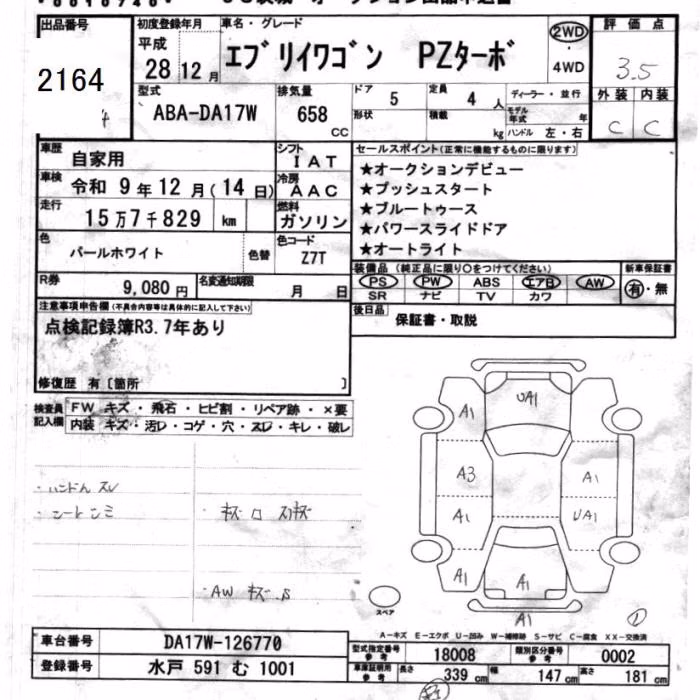 出品番号
2164
初度登録年月
平成
28 12 月
車名・グレード
ｴﾌﾞﾘｲﾜｺﾞﾝ PZﾀｰﾎﾞ
2WD
4WD
評価点
3.5
外装 内装
C C
型式
ABA-DA17W
排気量
658
CC
ドア
5
定員
4 人
ディーラー・並行
形状
積載
kg
モデル年式
年
ハンドル 左・右
車歴
自家用
シフト
I A T
車検
令和 9 年 12 月 ( 14 日)
冷房
A A C
走行
15 万 7 千 829 km
燃料
ガソリン
色
パールホワイト
色替
色コード
Z7T
セールスポイント(正常に機能するものに限ります)
★オークションデビュー
★プッシュスタート
★ブルートゥース
★パワースライドドア
★オートライト
装備品 (純正品に限り○をつけてください)
PS PW ABS エアB AW
SR ナビ TV カワ
新車保証書
有・無
R券
9,080 円
名変通知期限
月 日
後日品
保証書・取説
注意事項申告欄(不具合内容等は具体的に記入して下さい)
点検記録簿R3.7年あり
修復歴 有〔箇所 〕
検査員
記入欄
FW キズ・飛石・ヒビ割・リペア跡・×要
内装 キズ・汚レ・コゲ・穴・スレ・キレ・破レ
・ハンドル スレ
・シート シミ
・キズ ロ スリキズ
・AW キズ. S
A1
UA1
A3
A1
A1
UA1
A1
A1
A1
スペア
A1
A－キズ E－エクボ U－凹み W－補修跡 S－サビ C－腐食 XX－交換済
車台番号
DA17W-126770
登録番号
水戸 591 む 1001
型式指定番号
参考
18008
類別区分番号
参考
0002
車庫証明用
参考
長さ
339 cm
幅
147 cm
高さ
181 cm